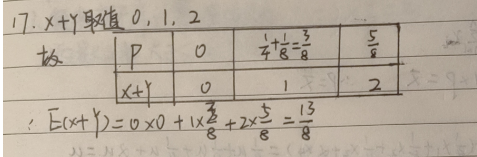 17. X+Y取值 0, 1, 2
故 P 0 1/4+1/8=3/8 5/8
X+Y 0 1 2
∴ E(X+Y)=0×0+1×3/8+2×5/8=13/8